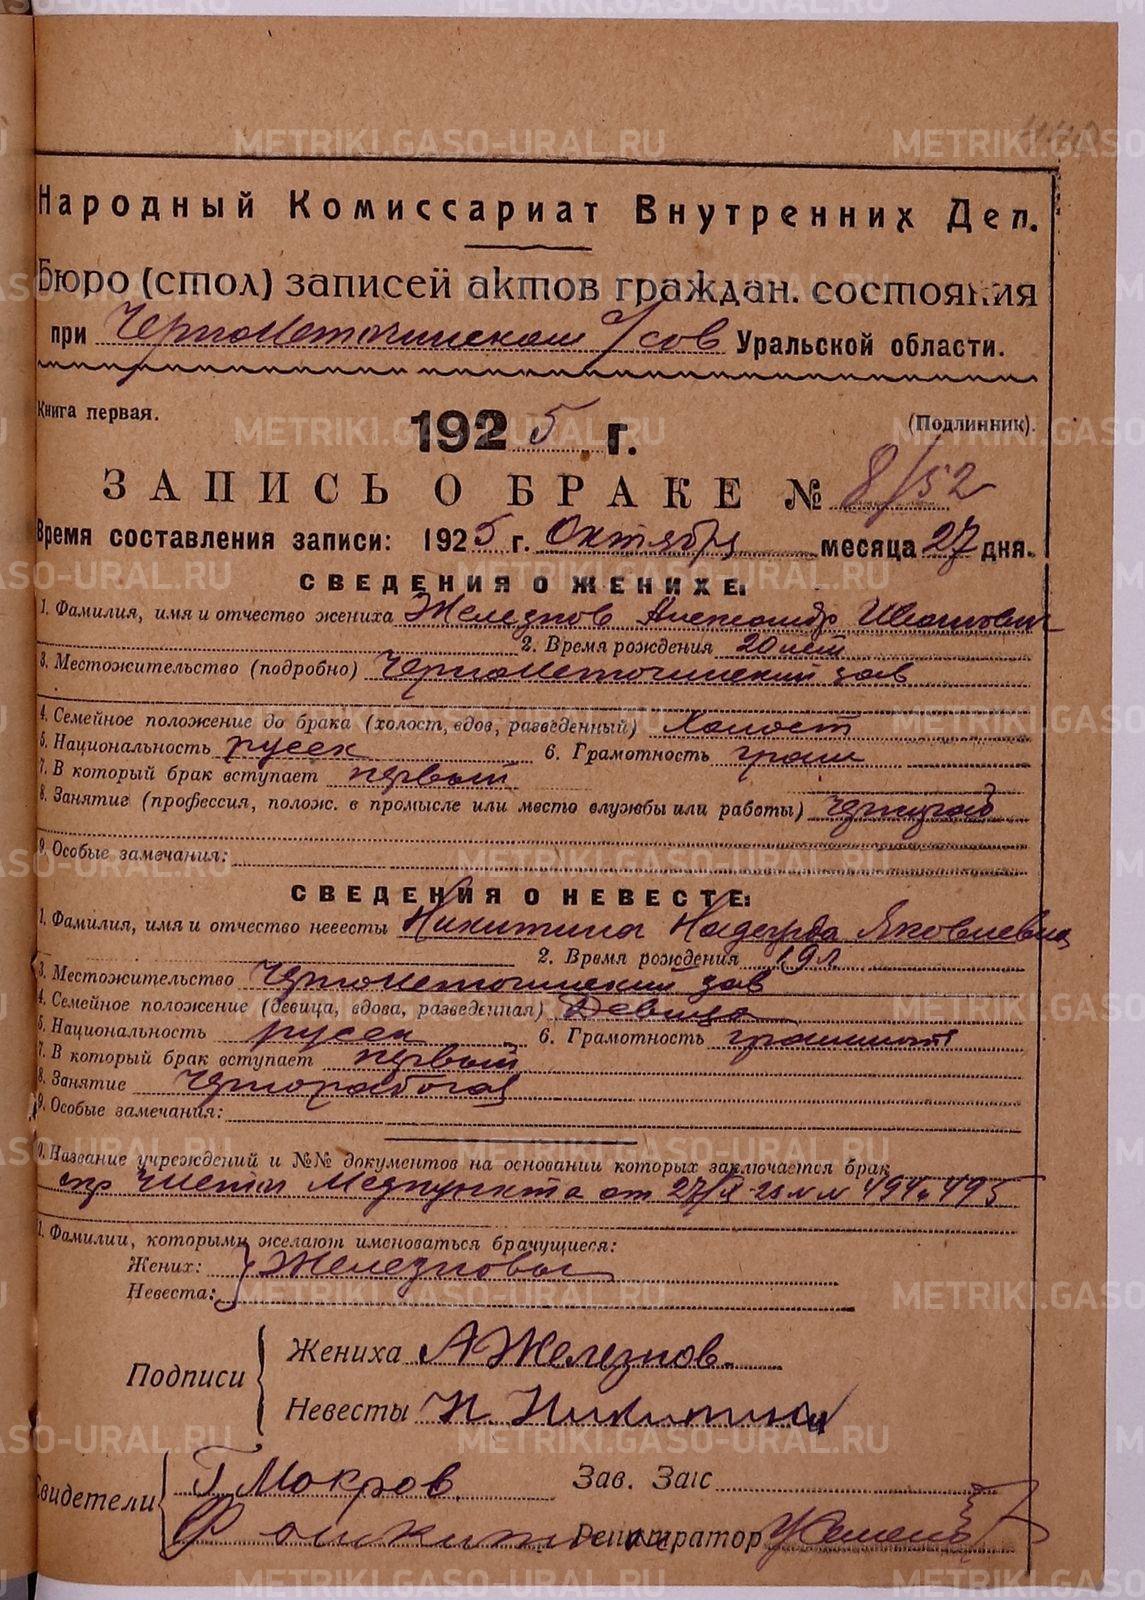 Народный Комиссариат Внутренних Дел.
Бюро (стол) записей актов граждан. состояния
при Черноисточинском с/сов Уральской области.
Книга первая. (Подлинник).
1925 г.
ЗАПИСЬ О БРАКЕ № 8/52
Время составления записи: 1925 г. Октября месяца 27 дня.
СВЕДЕНИЯ О ЖЕНИХЕ:
1. Фамилия, имя и отчество жениха Железнов Александр Иванович
2. Время рождения 20 лет
3. Местожительство (подробно) Черноисточинский зав
4. Семейное положение до брака (холост, вдов, разведенный) Холост
5. Национальность русск 6. Грамотность грам
7. В который брак вступает первый
8. Занятие (профессия, полож. в промысле или место службы или работы)
9. Особые замечания:
СВЕДЕНИЯ О НЕВЕСТЕ:
1. Фамилия, имя и отчество невесты Никитина Надежда Яковлевна
2. Время рождения 19 л.
3. Местожительство Черноисточинский зав
4. Семейное положение (девица, вдова, разведенная) Девица
5. Национальность русск 6. Грамотность
7. В который брак вступает первый
8. Занятие Чернорабочая
9. Особые замечания:
0. Название учреждений и №№ документов на основании которых заключается брак
спр Медпункта от 27/X-25 № № 494 и 495
1. Фамилии, которыми желают именоваться брачущиеся:
Жених: } Железновы
Невеста:
Подписи
Жениха А Железнов
Невесты Н. Никитина
Свидетели
Г Мокров Зав. Загс
Регистратор
METRIKI.GASO-URAL.RU